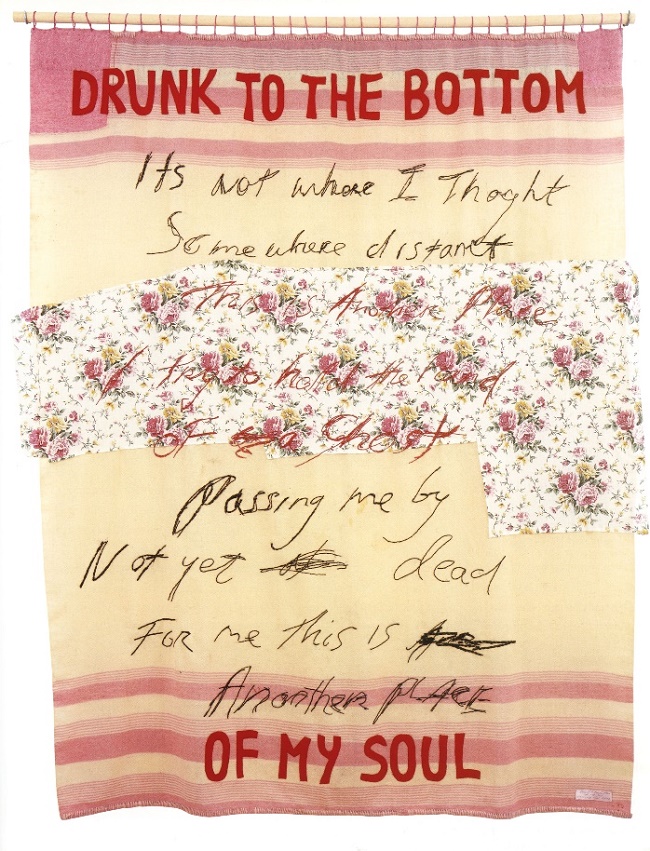 DRUNK TO THE BOTTOM
Its not where I Thoght
Some where distant
This is Anothere Place
I try to hold the hand
OF a Ghost
Passing me by
Not yet dead
For me this is
Anothere place
OF MY SOUL